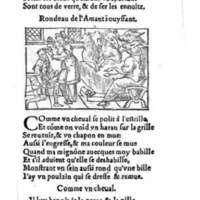 Sont tous de verre, & de ser les ennuitz.
Rondeau de l'Amant iouyssant.
COmme vn cheual se polit à l'estrille,
Et cõme on void vn haran sur la grille
Se reuenir, vn chapon en mue:
Aussi i'engresse, & ma couleur se mue
Quand ma mignõne auecques moy babille
Et s'il aduient qu'elle se deshabille,
Monstrant vn sein aussi rond qu'vne bille
I'ay vn poulain qui se dresse & remue.
Comme vn cheual.